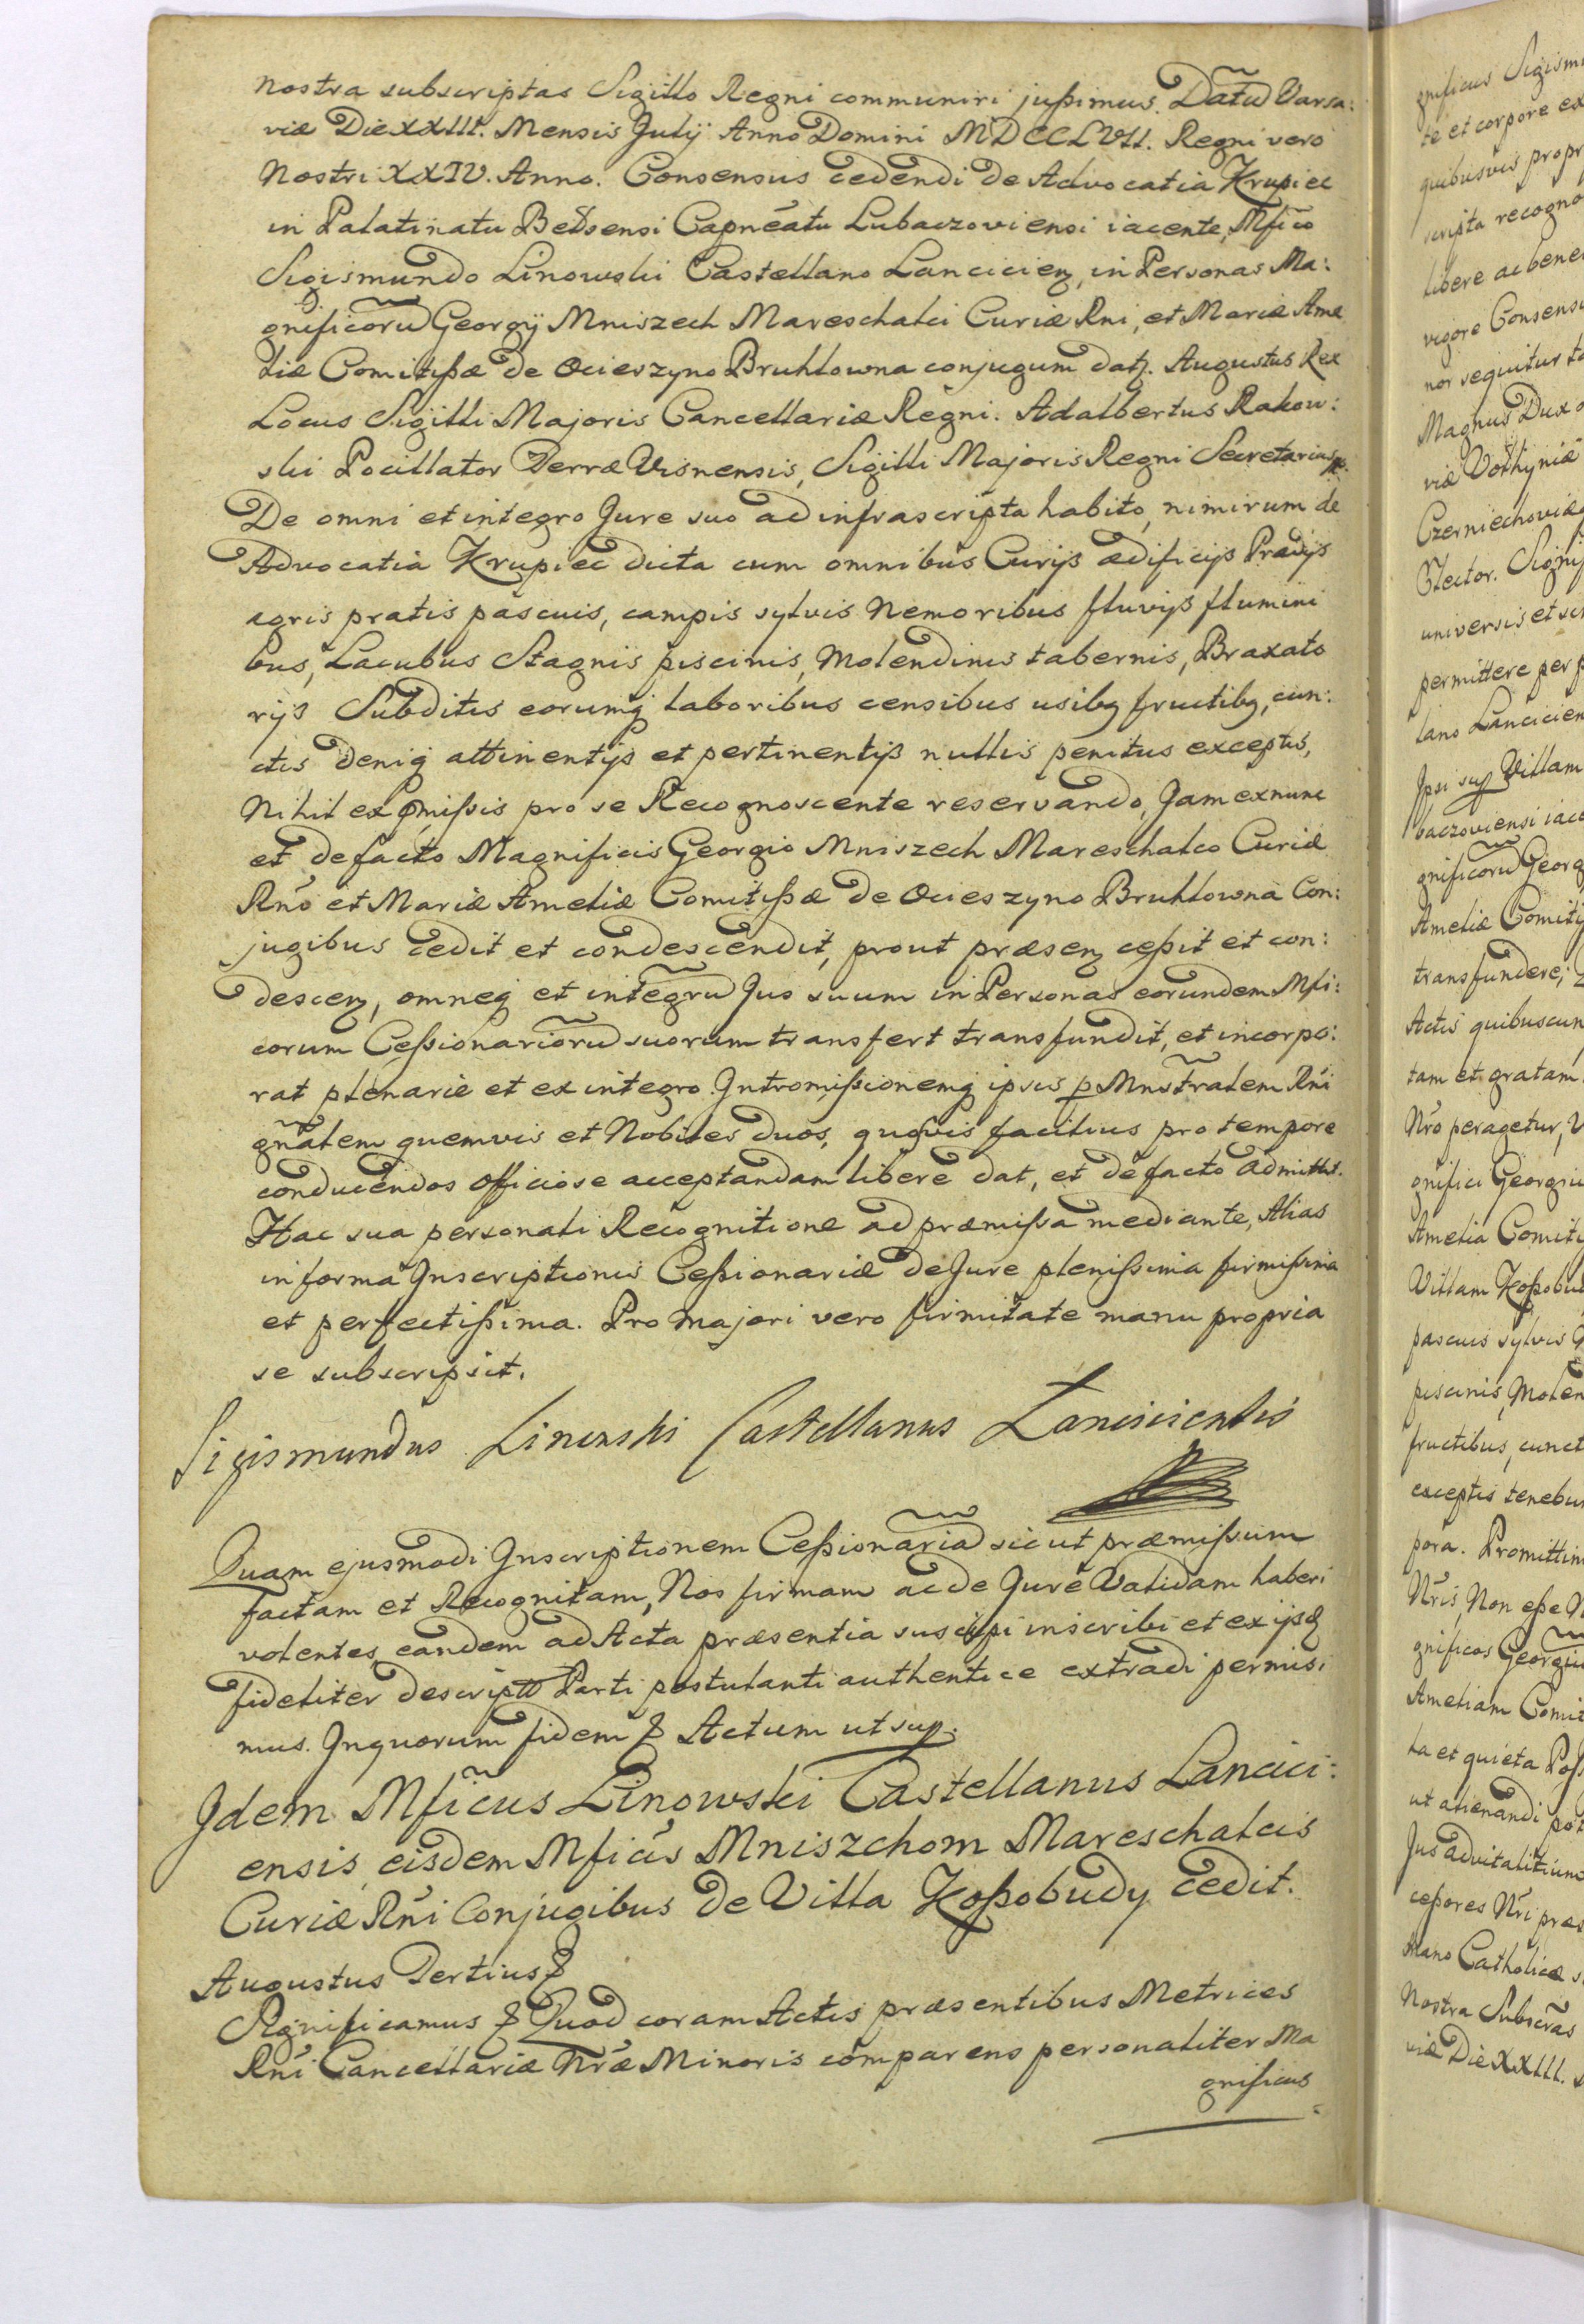 nostra subscriptas Sigillo Regni communiri jußimus. Datũ Varsa:
viæ Die XXIII. Mensis Julij Anno Domini MDCCLVII. Regni vero
Nostri XXIV. Anno. Consensus cedendi de Advocatia Krupiec
in Palatinatu Belzensi Capnẽatu Lubaczoviensi iacente, Mfico
Sigismundo Linowski Castellano Lancicien, in Personas Ma:
gnificorũ Georgij Mniszech Mareschalci Curiæ Rni, et Mariæ Ame
liæ Comitißæ de Ocieszyno Bruhlowna conjugum dat. Augustus Rex
Locus Sigilli Majoris Cancellariæ Regni. Adalbertus Rakow:
ski Pocillator Terræ Visnensis, Sigilli Majoris Regni Secretarius
De omni et integro Jure suo ad infrascripta habito, nimirum de
Advocatia Krupiec dicta cum omnibus Curijs ædificijs Prædijs
agris pratis pascuis, campis sylvis Nemoribus fluvijs flumini
bus, Lacubus Stagnis piscinis, Molendinis tabernis, Braxato
rijs Subditis eorumq laboribus censibus usibq fructibq, cun:
ctis deniq attinentijs et pertinentijs nullis penitus exceptis,
Nihil ex pmißis pro se Recognoscente reservando, Jam exnunc
et defacto Magnificis Georgio Mniszech Mareschalco Curiæ
Rnĩ et Mariæ Ameliæ Comitißæ de Ocieszyno Bruhlowna Con:
jugibus cedit et condescendit, prout præsen ceßit et con:
descen, omneq et integrũ Jus suum in Personas eorundem Mfi:
corum Ceßionariorũ suorum transfert transfundit, et incorpo:
rat plenarie et ex integro. Intromißionemq ipsis p Mnstralem Rni
gnãlem quemvis et Nobiles duos, quosvis facilius pro tempore
conducendos officiose acceptandam libere dat, et defacto admittit.
Hac sua personali Recognitione ad præmißa mediante, Alias
in forma Inscriptionis Ceßionariæ de Jure plenißima firmißima
et perfectißima. Pro majori vero firmitate manu propria
se subscripsit.
Sigismundus Linowski Castellanus Lanciciensis
Quam ejusmodi Inscriptionem Ceßionariã sicut præmißum
factam et Recognitam, Nos firmam ac de Jure Validam haberi
volentes, eandem ad Acta præsentia suscipi inscribi et ex ijsd
fideliter descript Parti postulanti authentice extradi permisi
mus. In quorum fidem & Actum ut sup.
Idem Mficus Linowski Castellanus Lancici:
ensis, eisdem Mficis Mniszchom Mareschalcis
Curiæ Rni Conjugibus de Villa Koßobudy cedit.
Augustus Tertius &
Significamus & Quod coram Actis præsentibus Metrices
Rni Cancellariæ Nræ Minoris comparens personaliter Ma
gnificus
gnificus Sigism
te et corpore ex
quibusvis propr
scripta recogno
libere ac bene
vigore Consens
nor sequitur t
Magnus Dux
viæ Volhyniæ
Czerniechoviæ
Elector. Signif
universis et
permittere per
lano Lancicien
Ipsi sup Villam
baczoviensi iac
gnificorũ Georg
Ameliæ Comiti
transfundere;
Actis quibuscun
tam et gratam
Nrõ peragetur,
gnifici Georgii
Amelia Comit
Villam Koßobu
pascuis sylvis
piscinis, Molen
fructibus, cunct
exceptis tenebu
pora. Promittim
Nris, Non eße
gnificos Georgiũ
Ameliam Comit
ta et quieta Poß
ut alienandi pot
Jus advitalitium
ceßores Nri præs
mano Catholicæ
Nostra Subscras
viæ Die XXIII.